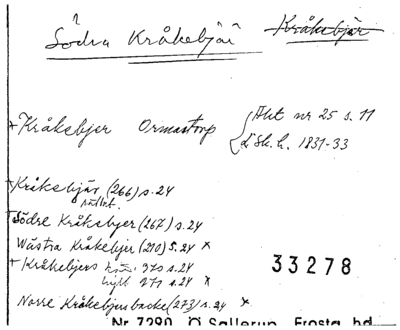 Södra Kråkebjär Kråkebjär
+ Kråkebjer Ormastorp { Akt nr 25 s. 11
L. Sk. h. 1831-33
+ Kråkebjär (266) s. 24
Södre Kråkebjer (267) s. 24
Wästra Kråkebjer (270) s. 24 x
+ Kråkebjers 370 s. 24
271 s. 24 x
33278
Norre Kråkebjersbacke (273) s. 24 x
Nr 7290 Ö Sallerup Frosta hd